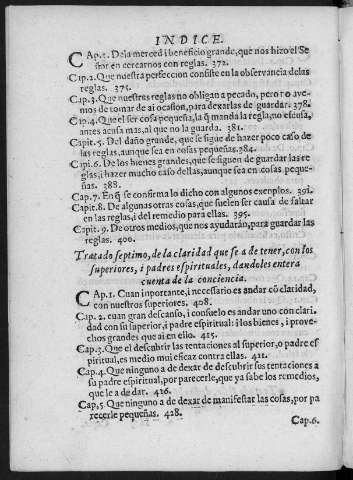 INDICE.
CAp.1. Dela merced i beneficio grande, que nos hizo el Se
ñor en cercarnos con reglas. 372.
Cap.2. Que nuestra perfeccion consiste en la observancia delas
reglas. 375.
Cap.3. Que nuestras reglas no obligan a pecado, pero no ave-
mos de tomar de ai ocasion, para dexarlas de guardar. 378.
Cap.4. Que el ser cosa pequeña, la q̃ manda la regla, no escusa,
antes acusa mas, al que no la guarda. 381.
Capit.5. Del daño grande, que se sigue de hazer poco caso de
las reglas, aunque sea en cosas pequeñas. 384.
Capi.6. De los bienes grandes, que se siguen de guardar las re
glas, i hazer mucho caso dellas, aunque sea en cosas peque-
ñas. 388.
Cap.7. En q̃ se confirma lo dicho con algunos exemplos. 391.
Capit.8. De algunas otras cosas, que suelen ser causa de faltar
en las reglas, i del remedio para ellas. 395.
Capit.9. De otros medios, que nos ayudarán, para guardar las
reglas. 400.
Tratado septimo, de la claridad que se a de tener, con los
superiores, i padres espirituales, dandoles entera
cuenta de la conciencia.
CAp.1. Cuan importante, i necessario es andar cõ claridad,
con nuestros superiores. 408.
Cap. 2. cuan gran descanso, i consuelo es andar uno con clari.
dad con su superior, i padre espiritual: i los bienes, i prove-
chos grandes que ai en ello. 415.
Cap.3. Que el descubrir las tentaciones al superior, o padre es
piritual, es medio mui eficaz contra ellas. 421.
Cap.4. Que ninguno a de dexar de descubrir sus tentaciones a
su padre espiritual, por parecerle, que ya sabe los remedios,
que le a de dar. 426.
Cap,5 Que ninguno a de dexar de manifestar las cosas, por pa
recerle pequeñas. 428.
Cap.6.